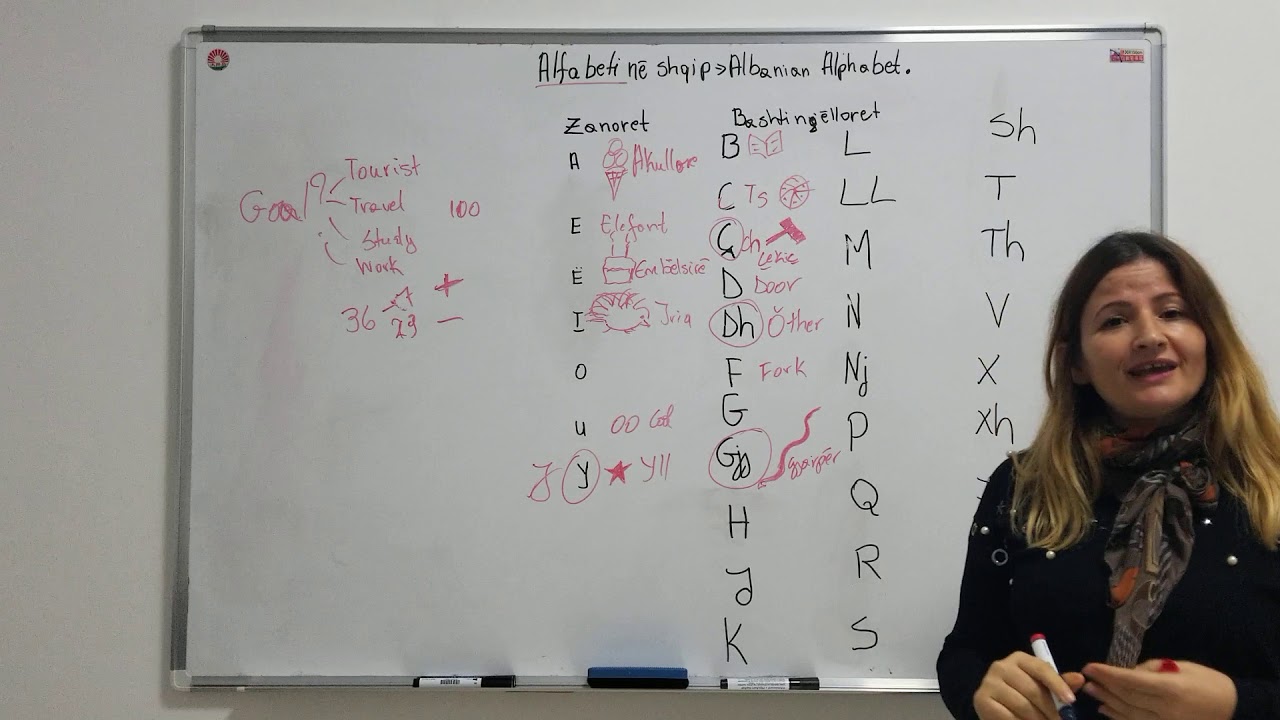 Alfabeti në shqip > Albanian Alphabet.
Zanoret
A Akullore
E Elefant
Ë Embëlsirë
I Iria
O
u OO
J y Yll
Bashtingëlloret
B
C Ts
Ç ch Çekiç
D Door
Dh Other
F Fork
G
Gj gjarpër
H
J
K
L
LL
M
N
Nj
P
Q
R
S
Sh
T
Th
V
X
Xh
Goal?
Tourist
Travel 100
Study
Work
36 23 + -